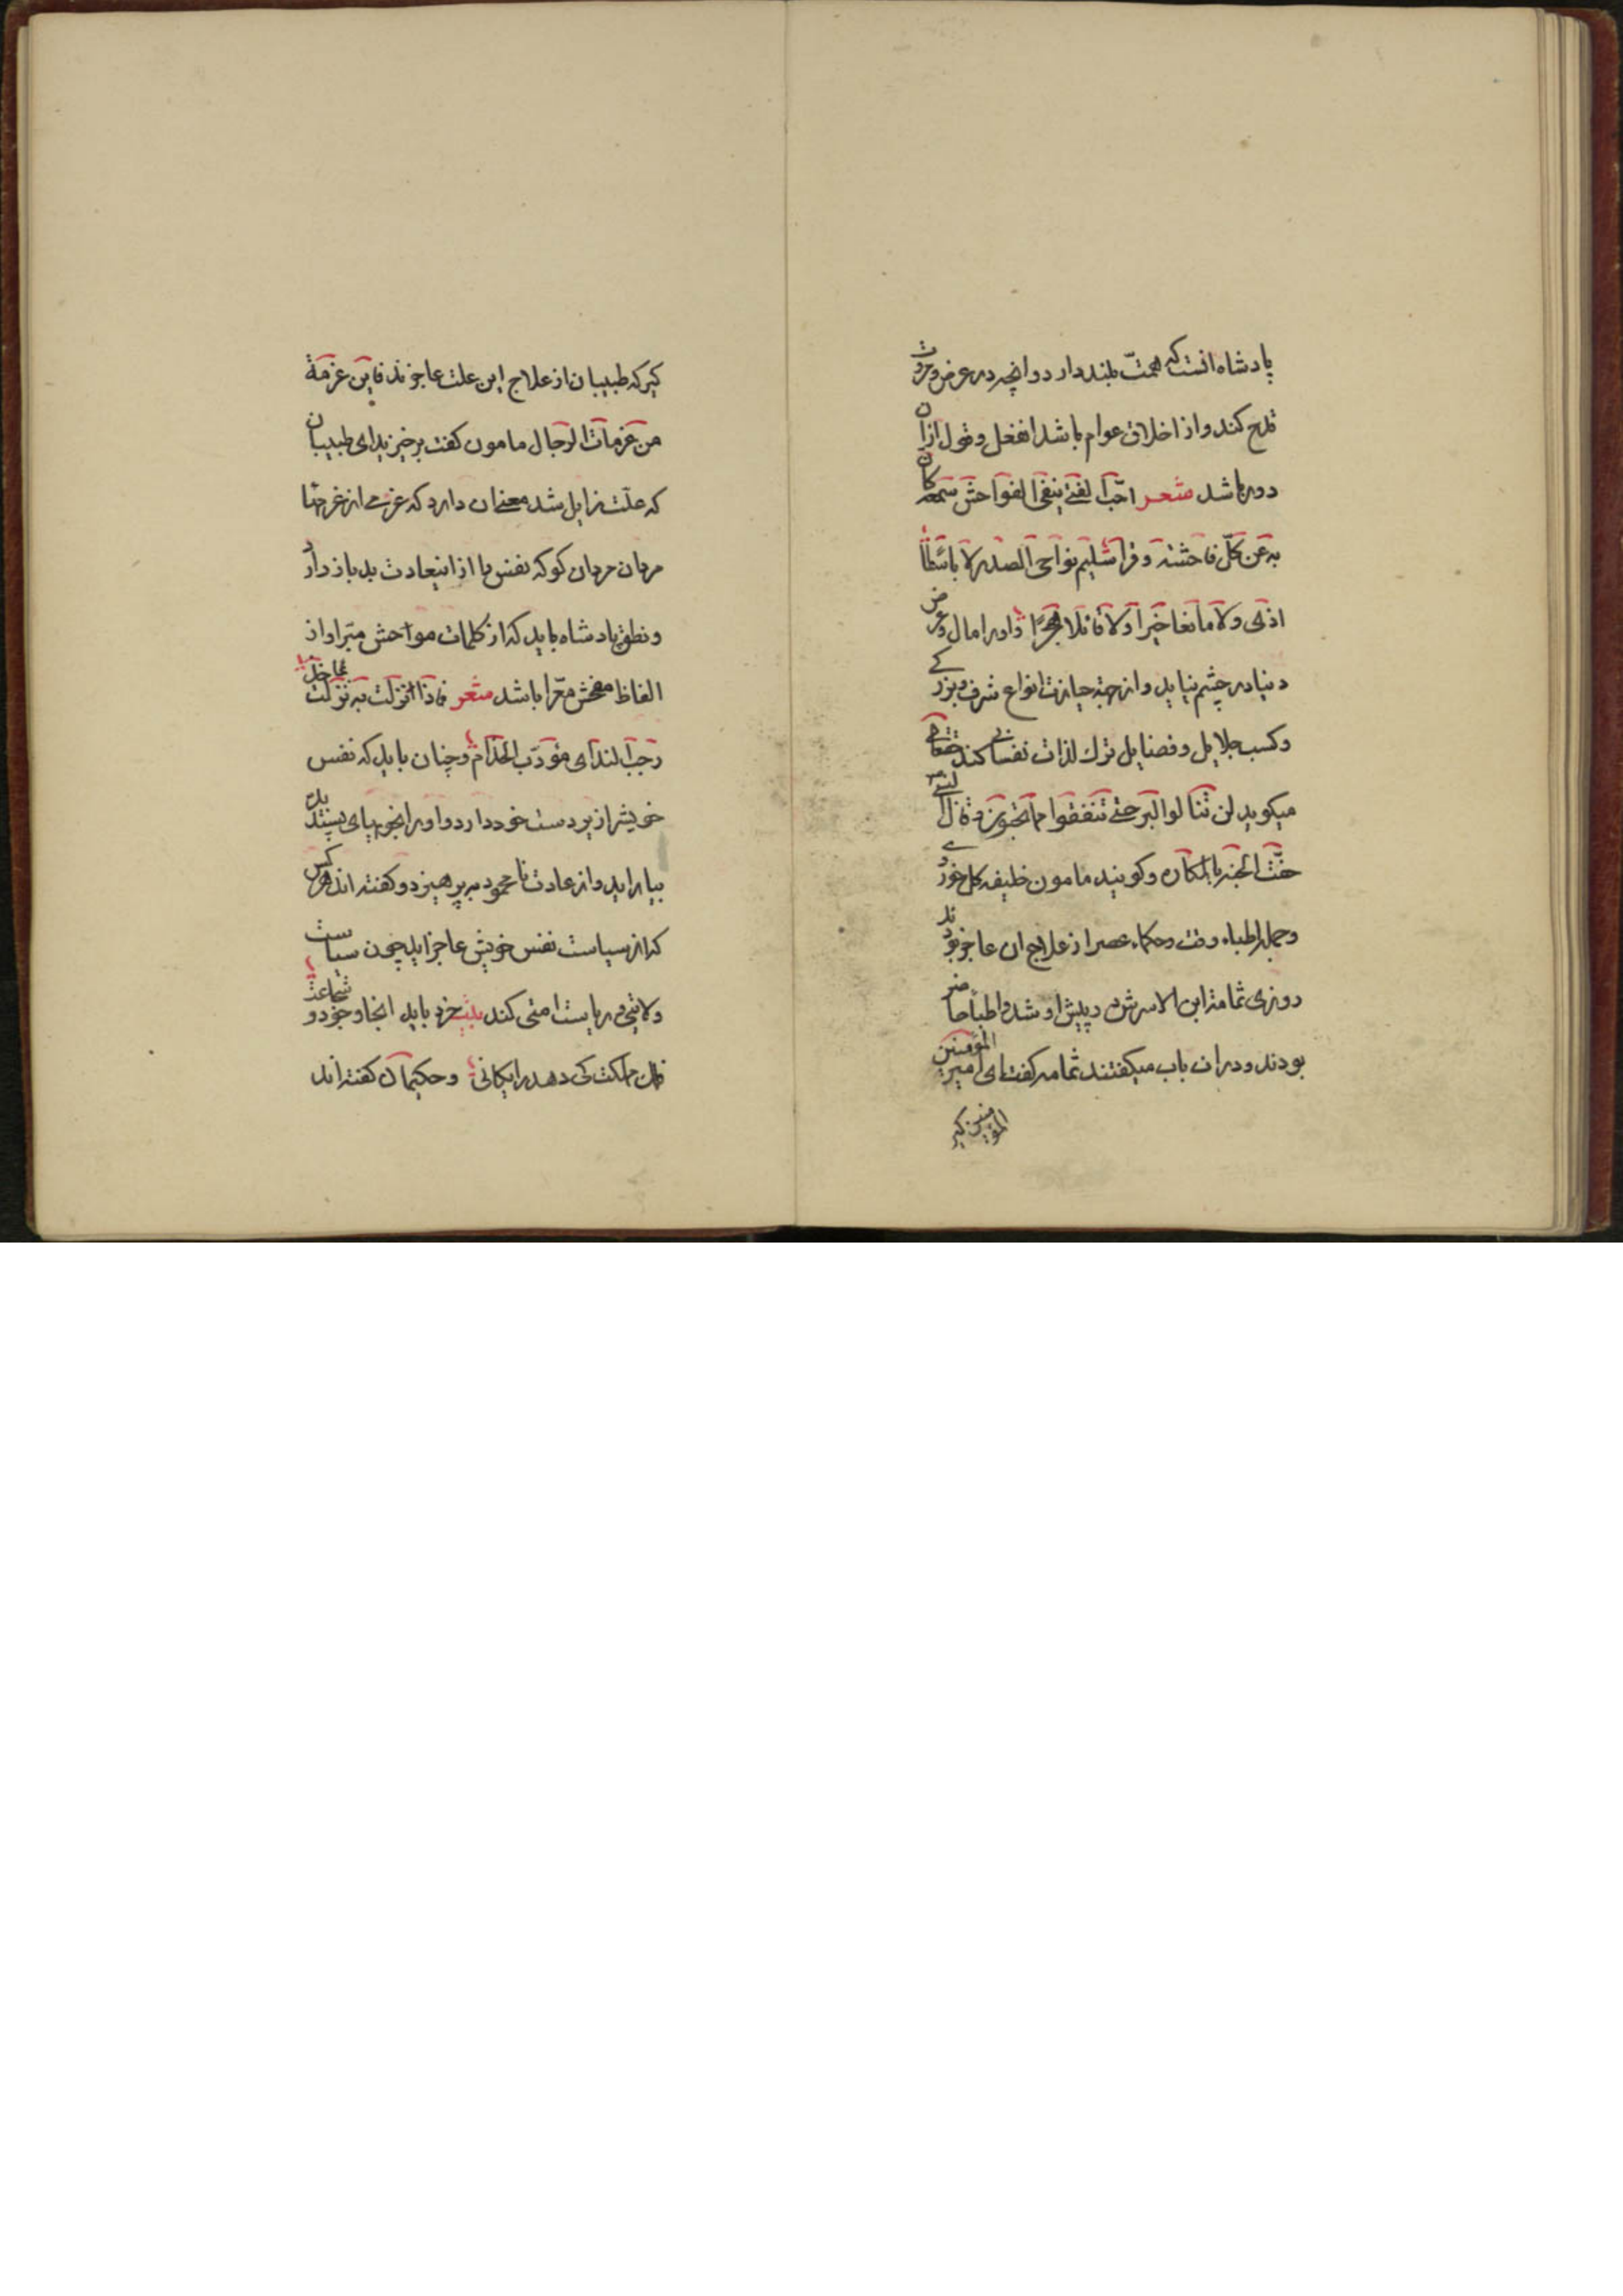 پادشاه انست که همت بلند دارد و انچه در عرض و مروت
قدح کند و از اخلاق عوام باشد انفعل و قول ازان
دور باشد شعر احب الفتی ینفی الفواحش سمعه کان
به عن کل فاحشة وقرا سلیم نواحی الصدر لا باسطا
اذی ولا مانعا خیرا ولا قائلا هجرا و اورا مال و عرض
دنیا در چشم نیاید و از جهة حیازت انواع شرف و بزرکی
و کسب جلایل و فضایل ترک لذات نفسانی کند حقتعالی
میکوید لن تنالوا البر حتی تنفقوا مما تحبون و قال النبی
حفت الجنة بالمکاره و کویند مامون خلیفه کل خوردی
و جمله اطباء وقت و حکماء عصر از علاج ان عاجز بودند
روزی ثمامة ابن الاسرش در پیش او شد و اطبا حاضر
بودند و دران باب میکفتند ثمامه کفت ای امیر المؤمنین
المؤمنین کیر
کیر که طبیبان از علاج این علت عاجزند فاین عزمة
من عزمات الرجال مامون کفت برخیزید ای طبیبان
که علت زایل شد معنی ان دارد که عزمی از عزمتها
مردان مردان کو که نفس را از اینعادت بد باز دارد
و نطق پادشاه باید که از کلمات مواحش مبرا و از
الفاظ مفحش معرا باشد شعر فاذا انزلت به نزلت بماجد
رحب الندای مؤدب الخدام و چنان باید که نفس
خویش را زیر دست خود دارد و اورا بخوبیهای پسندیده
بیاراید و از عادت نامحمود بپرهیزد و کفته اند هر کس
که از سیاست نفس خویش عاجز اید چون سیاست
ولایتی و ریاست امتی کند بیت خرد باید انجا و جود و شجاعت
فلک مملکت کی دهد رایکانی و حکیمان کفته اند